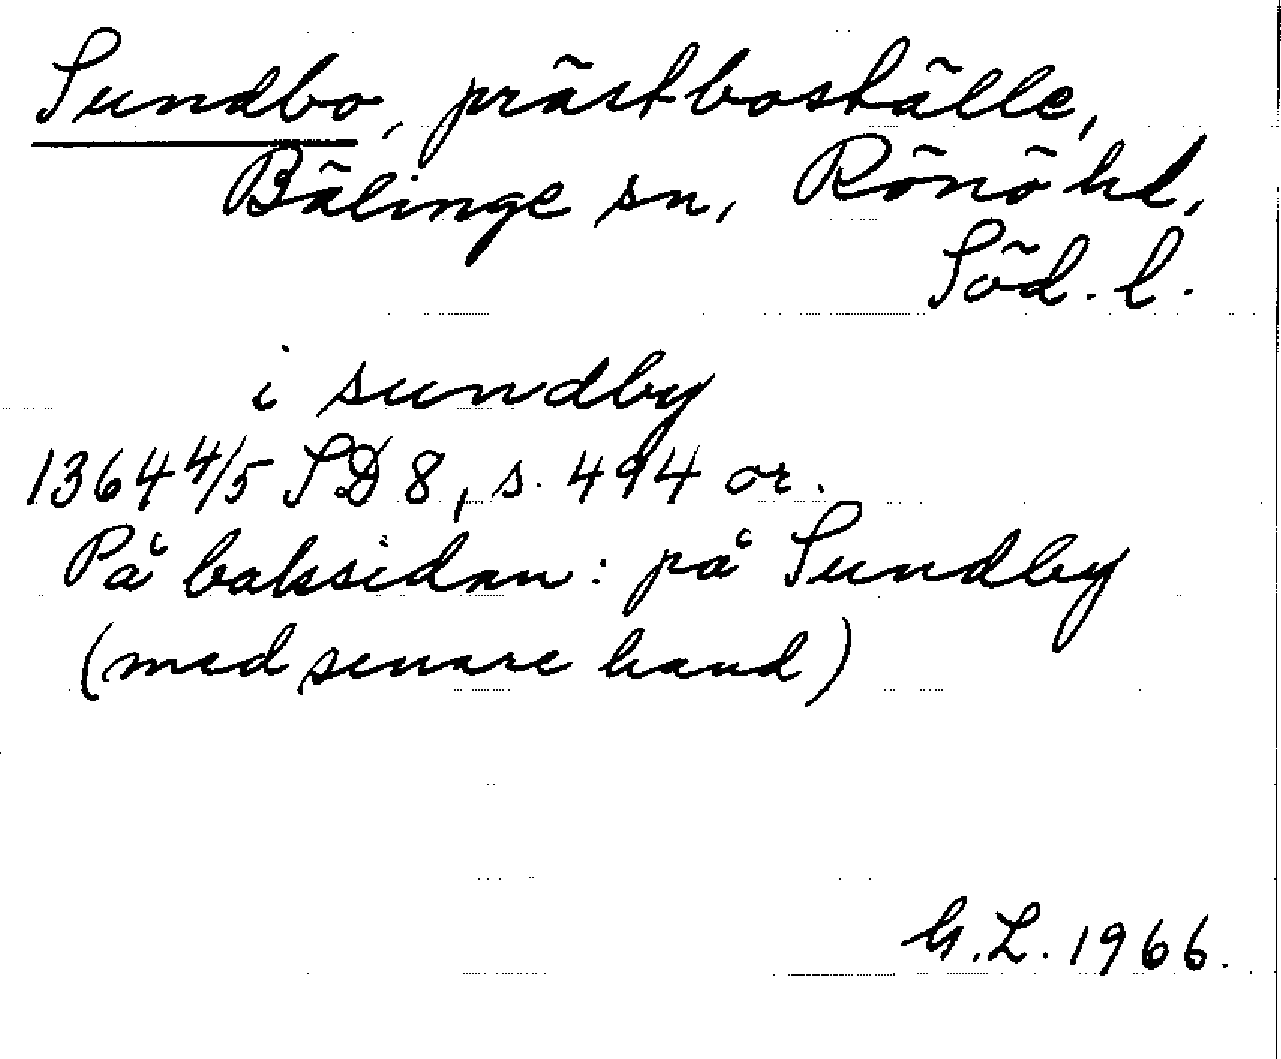 Sundbo, prästboställe,
Bälinge sn, Rönö hd,
Söd. l.
i sundby
1364 4/5 SD 8, s. 494 or.
På baksidan: på Sundby
(med senare hand)
G.L. 1966.